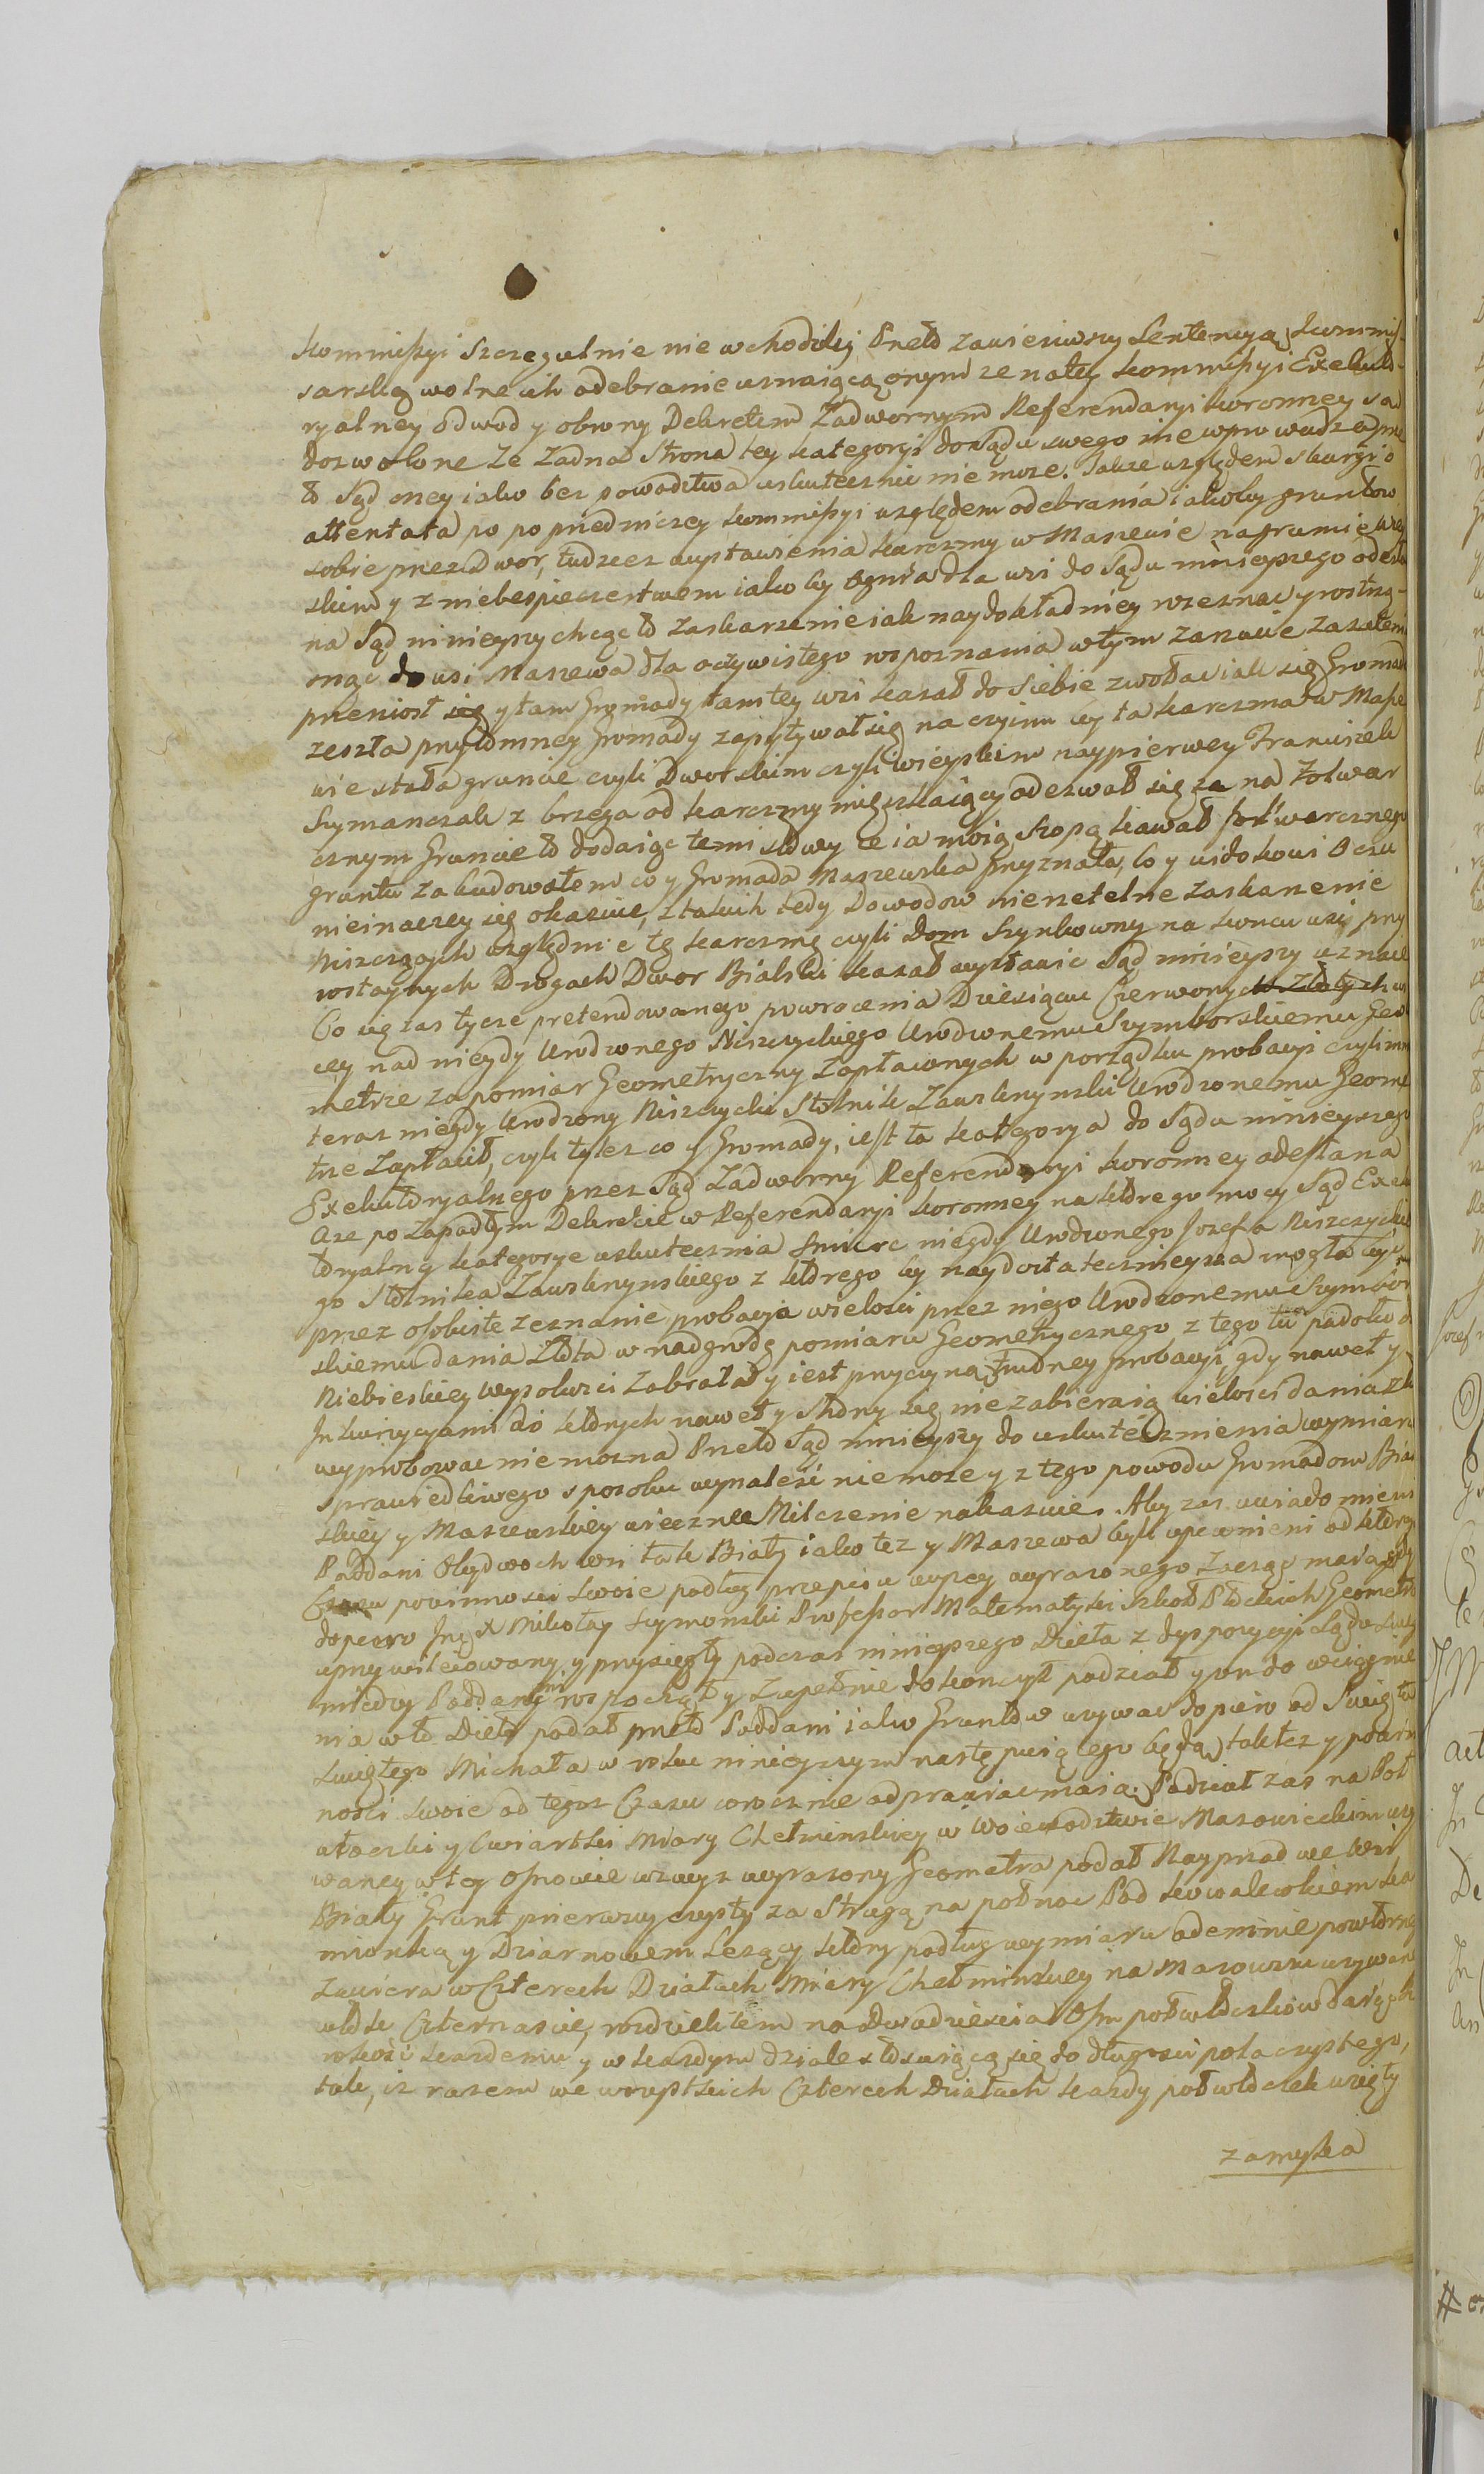 Kommissyi Szczegulnie nie wchodziły Przeto zawiesiwszy Sentencyą Kommis-
sarską wolne ich odebranie uznaiącą onym ze na tey Kommissyi Exekuto-
ryalney odwod y obrony Dekretem Zadwornym Referendaryi Koronney są
dozwolone Ze Zadna Strona tey kategoryi do Sądu swego nie wprowadza
to Sąd oney iako bez powodztwa uskutecznić nie może. Także względem skargi o
attentata po poprzedniczey Kommissyi względem odebrania iakoby gruntow
sobie przez Dwor, tudzież wystawienia karczmy w Maszewie na gruncie wiey
skim y z niebespieczenstwem iakoby Ognia dla wsi do Sądu ninieyszego odesła
na Sąd ninieyszy chcąc to zaskarzenie iak naydokładniey rozeznać y rostrzą-
snąć do wsi Maszewa dla oczywistego rospoznania w tym zazaleni
przeniosł się y tam Gromady tamtey wsi kazał do siebie zwołać iak się Gromada
zeszła przytomney Gromady zapytywał się na czyim by ta karczma w Masze
wie stała gruncie czyli Dworskim czyli wieyskim naypierwey Franciszek
Szymanczak z brzega od karczmy mięszkaiący odezwał się ze na Folwar
cznym Gruncie to dodaiąc temi słowy ze ia moią szopą kawał folwarcznego
gruntu zabudowałem co y Gromada Maszewska przyznała, co y widokowi Oczu
nieinaczey się okazuie, z takich tedy Dowodow nierzetelne zaskarzenie
Niszczących względnie tę karczmę czyli Dom Szynkowny na koncu wsi przy
rostaynych Drogach Dwor Bialski kazał wystawić Sąd ninieyszy uznaie
Co się zas tycze pretendowanego powrocenia Dziesiąciu Czerwonych Złotych w
cey nad niegdy Urodzonego Niszczyckiego Urodzonemu Szymborskiemu Geo
metrze za pomiar Geometryczny Zapłaconych w porządku probacyi czyli mn
teraz niegdy Urodzony Niszczycki Stolnik Zawskrzynski Urodzonemu Geome
trze Zapłacił, czyli tylez co y Gromady, iest ta kategorya do Sądu ninieyszego
Exekutoryalnego przez Sąd Zadworny Referendaryi Koronney odesłana
Aze po zapadłym Dekrecie w Referendaryi Koronney na ktorego mocy Sąd Exek
toryalny kategorye uskutecznia smierc niegdy Urodzonego Jozefa Niszczyckie
go Stolnika Zawskrzynskiego z ktorego by naydostatecznieysza mogła być
przez osobiste zeznanie probacya wielosci przez niego Urodzonemu Szymbor
skiemu dania Złota w nadgrodę pomiaru Geometrycznego z tego tu padołu d
Niebieskiey Wysokosci zabrała y iest przyczyną trudney probacyi, gdy nawet y
Inkwizycyami do ktorych nawet y strony się nie zabieraią wielosci dania Zło
wyprobować nie mozna Przeto Sąd ninieyszy do uskutecznienia wymiaru
sprawiedliwego sposobu wynaleść nie moze y z tego powodu Gromadom Bial
skiey y Maszewskiey wieczne Milczenie nakazuie. Aby zas uwiadomieni
Poddani Obydwoch wsi tak Biały iako tez y Maszewa byli upewnieni od ktorego
Czasu powinnosci swoie podług przepisu wyzey wyrazonego zacząć maią gdy
dopiero Jmć X Mikołay Szymonski Professor Matematyki Szkoł Płockich Geometra
uprzywileiowany y przysięgły podczas ninieyszego Dzieła z dyspozycyi Sądu swey
miedzy Poddanymi rospoczął y Zupełnie dokonczył podział y on do wciągnie
nia w to Dzieło podał przeto Poddani iako Gruntow uzywać dopiero od Swięta
Swiętego Michała w roku ninieyszym następuiącego będą, tak tez y powin
nosci swoie od tegoz Czasu corocznie odprawiać maią. Podział zas na Poł
włoczki y Cwiartki Miary Chełminskiey w Woiewodztwie Mazowieckim uzy
waney w tey osnowie wzwyz wyrazony Geometra podał Nayprzod we Wsi
Biały Grunt pierwszy czysty za Strugą na połnoc Pod Kowalewkiem Ka
mionką y Dziarnowem Lezący ktory podług wymiaru odemnie powtorn
zawiera w Czterech Działach Miary Chełminskiey na Mazowszu uzywan
włok Czternascie, rozdzieliłem na Dwadziescia Osm połwłoczkow daiąc sz
rokosci kazdemu y w kazdym dziale stosuiącą się do długosci pola czystego,
tak, iz razem we wszystkich Czterech Działach kazdy połwłoczek wzięty
zamyka